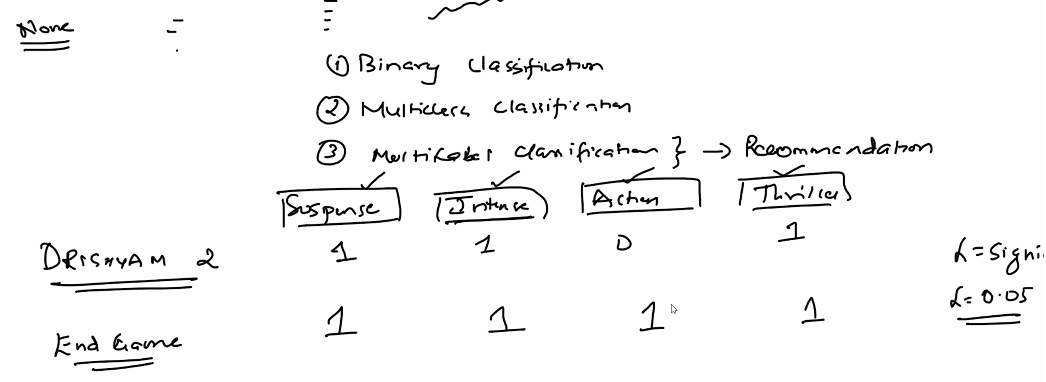 None
① Binary Classification
② Multiclass Classification
③ Multilabel Classification } → Recommendation
Suspense Intense Action Thriller
DRISHYAM 2 1 1 0 1
α = Signi
α = 0.05
End Game 1 1 1 1